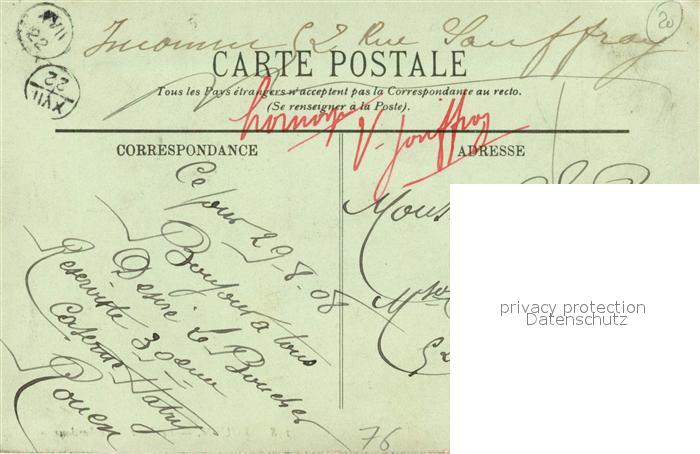 Inconnu 52 Rue Souffroy
20
XVII
22
XVII
22
CARTE POSTALE
Tous les Pays étrangers n'acceptent pas la Correspondance au recto.
(Se renseigner à la Poste).
V. Jouffroy
CORRESPONDANCE
ADRESSE
Ce
jour 29-8-08
Bonjour a tous
Desire le Boucher
Reserviste 30eme
Caserne Hatry
Rouen
Mons
52
privacy protection
Datenschutz
76